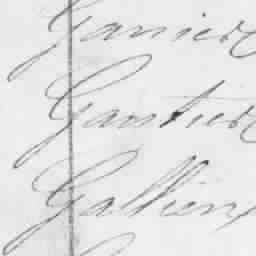 Garnier
Gautier
Gallien